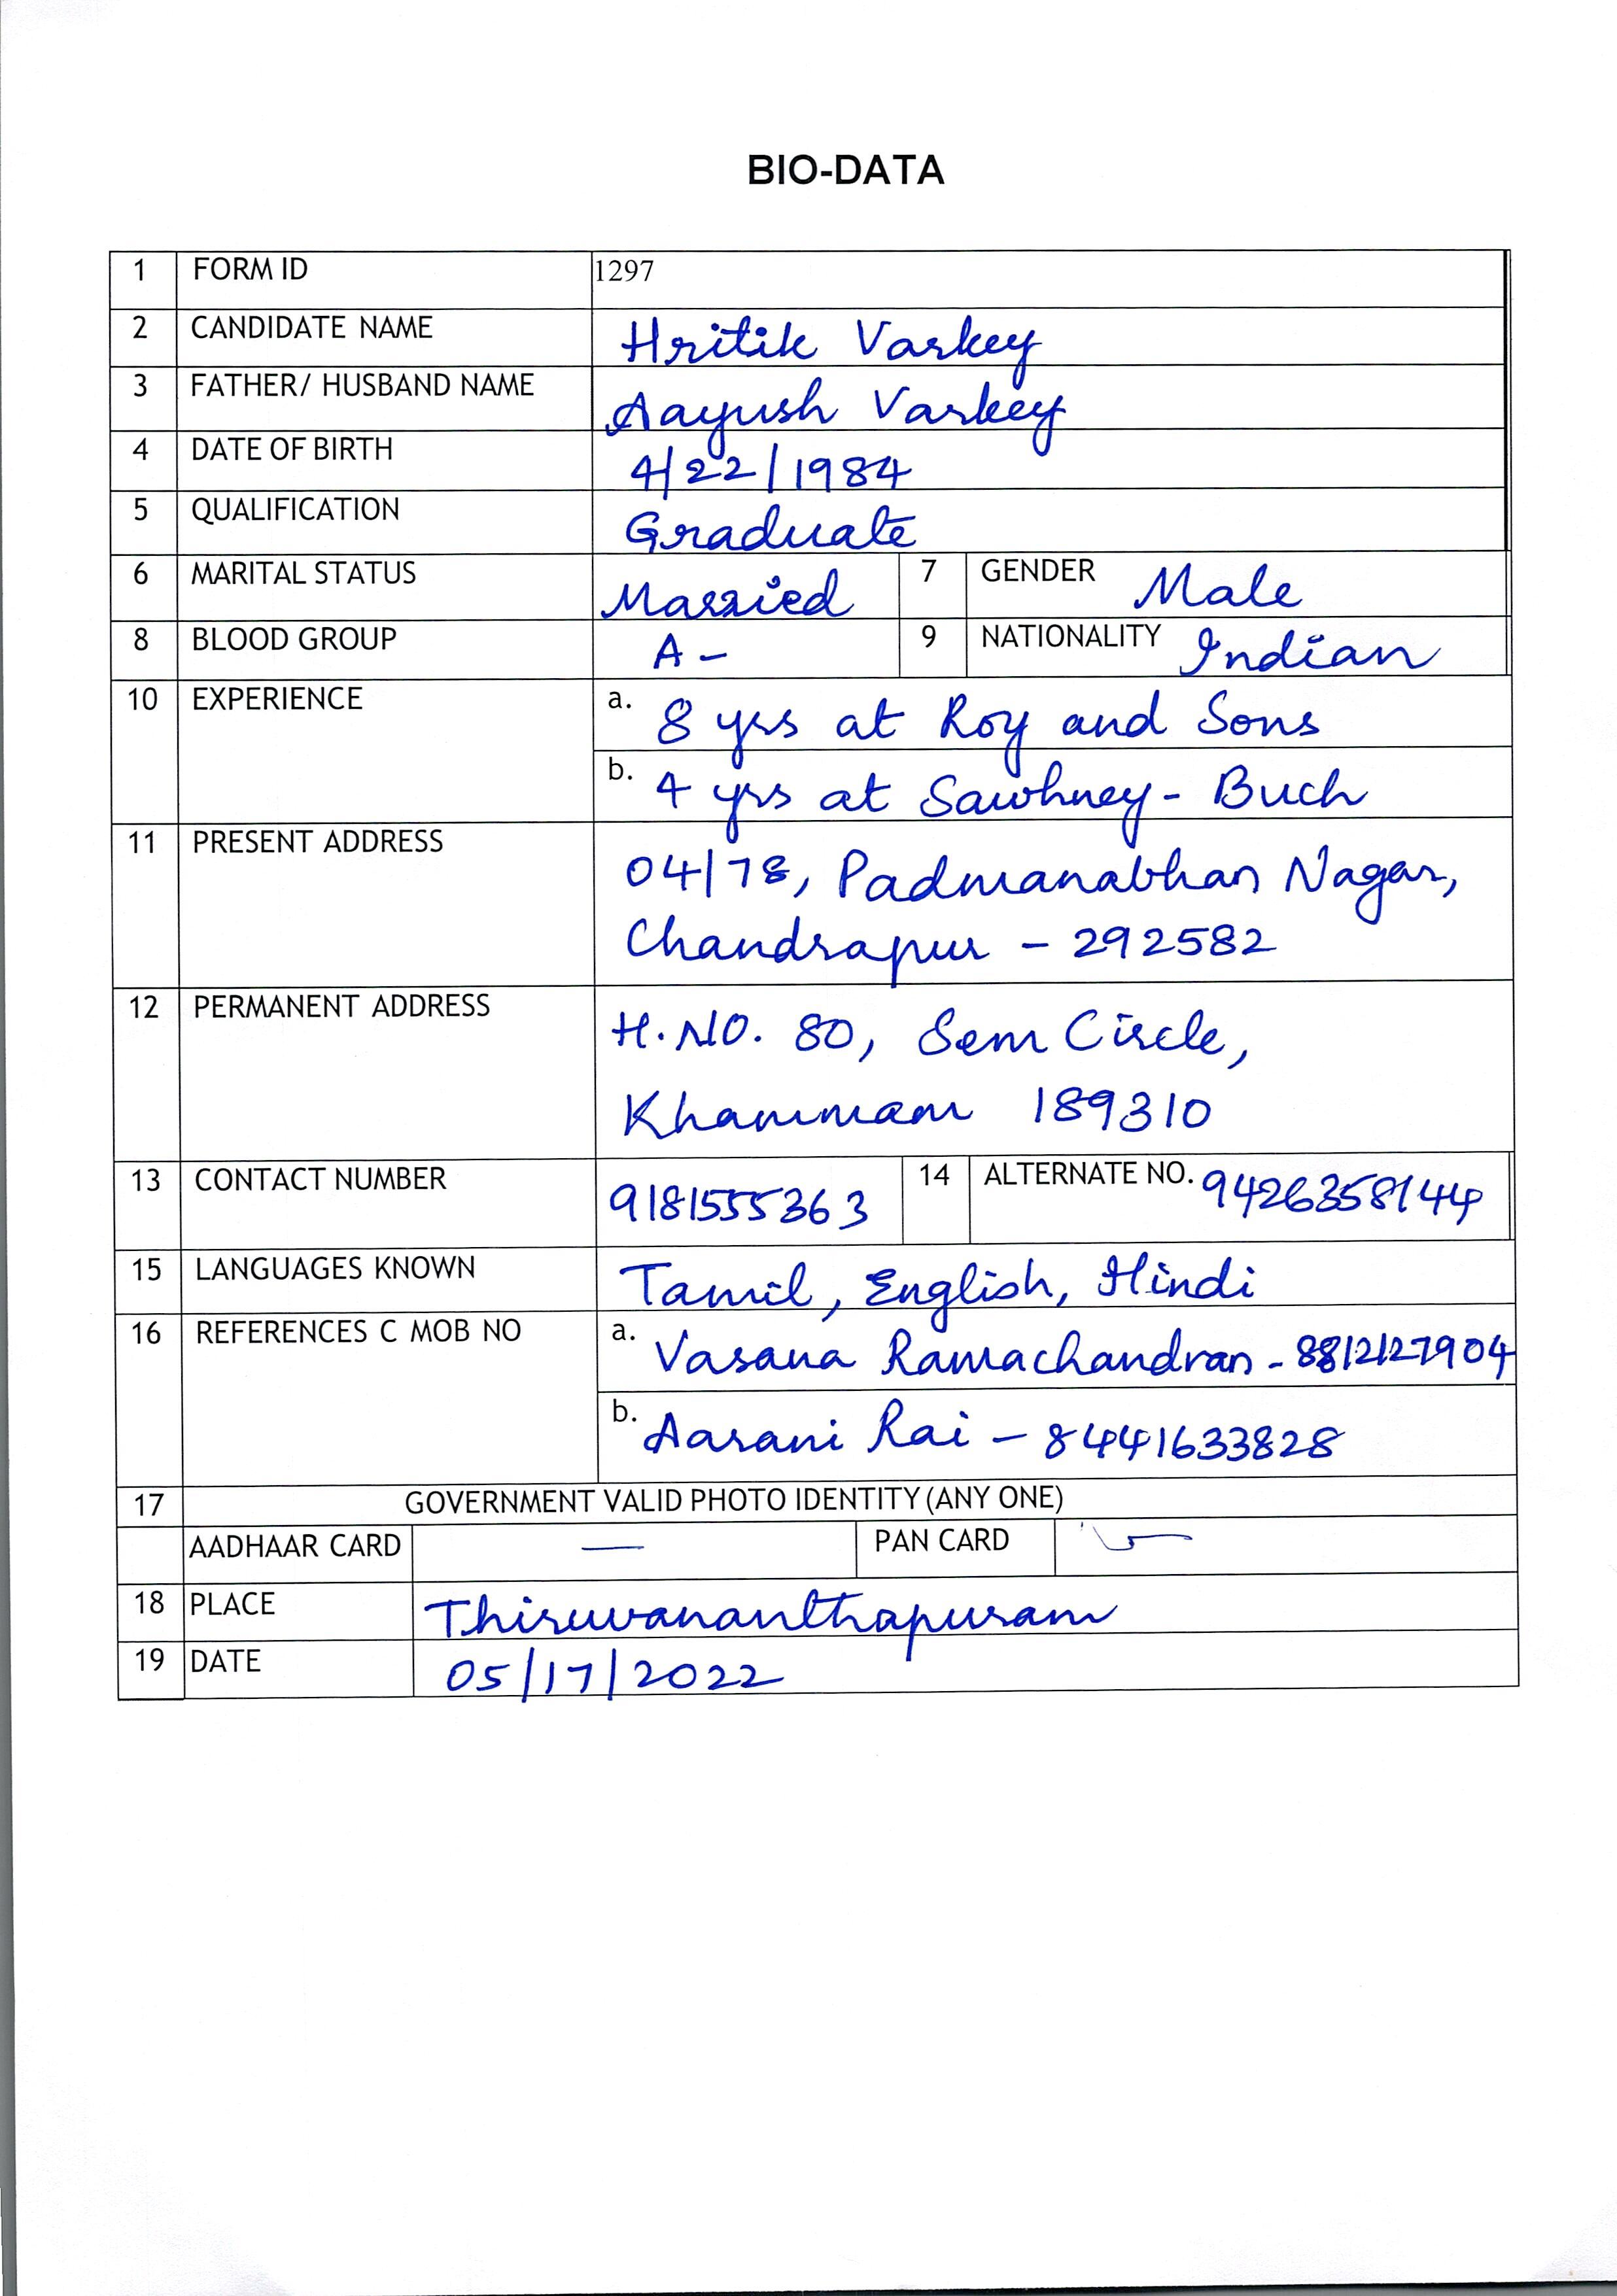 BIO-DATA
1 FORM ID 1297
2 CANDIDATE NAME Hritik Varkey
3 FATHER/ HUSBAND NAME Aayush Varkey
4 DATE OF BIRTH 4/22/1984
5 QUALIFICATION Graduate
6 MARITAL STATUS Married 7 GENDER Male
8 BLOOD GROUP A - 9 NATIONALITY Indian
10 EXPERIENCE a. 8 yrs at Roy and Sons
b. 4 yrs at Sawhney - Buch
11 PRESENT ADDRESS 04/78, Padmanabhan Nagar,
Chandrapur - 292582
12 PERMANENT ADDRESS H.NO. 80, Sem Circle,
Khammam 189310
13 CONTACT NUMBER 9181555363 14 ALTERNATE NO. 9426358144
15 LANGUAGES KNOWN Tamil, English, Hindi
16 REFERENCES C MOB NO a. Vasana Ramachandran - 8812127904
b. Aarani Rai - 8441633828
17 GOVERNMENT VALID PHOTO IDENTITY (ANY ONE)
AADHAAR CARD — PAN CARD
18 PLACE Thiruvananthapuram
19 DATE 05/17/2022